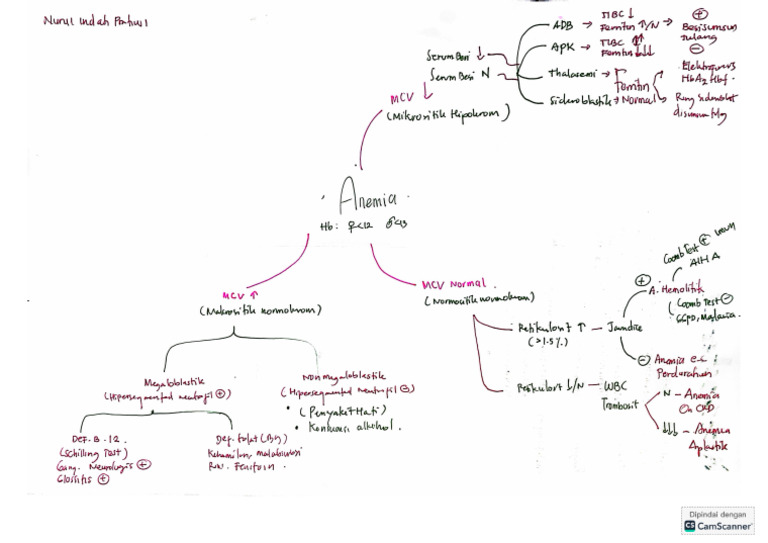 Nurul Indah Pertiwi
Serum Besi ↓
Serum Besi N
ADB → TIBC ↓ Ferritin ↑/N → ⊕ Besi sumsum tulang
APK → TIBC ⇈ Ferritin ↓↓↓ ⊖
Thalasemi → Ferritin → Elektroforesis HbA2 Hbf.
Sideroblastik → Normal → Ring Sideroblast disumsum
MCV ↓
(Mikrositik Hipokrom)
Anemia
Hb: ♀<12 ♂<13
MCV ↑
(Makrositik normokrom)
Megaloblastik
(Hipersegmented neutrofil ⊕)
Def. B-12.
(Schilling Test)
Gang. Neurologis ⊕
Glositis ⊕
Def. Folat (B9)
Kehamilan, malabsorbsi
Riw. Fenitoin.
Non megaloblastik
(Hipersegmented neutrofil ⊖)
• (Penyakit Hati)
• Konsumsi alkohol.
MCV Normal.
(Normositik normokrom)
Retikulosit ↑ — Jaundice
(>1.5%)
⊕ A. Hemolitik
Coomb Test ⊕
AIHA
Coomb Test ⊖
G6PD, Malaria.
⊖ Anemia e.c
Perdarahan
Retikulosit ↓/N — WBC
Trombosit
N – Anemia
On CKD
↓↓↓ – Anemia
Aplastik
Dipindai dengan
CS CamScanner